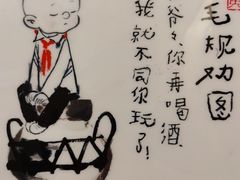 毛规劝图
爷々,你再喝酒,
我就不同你玩了!